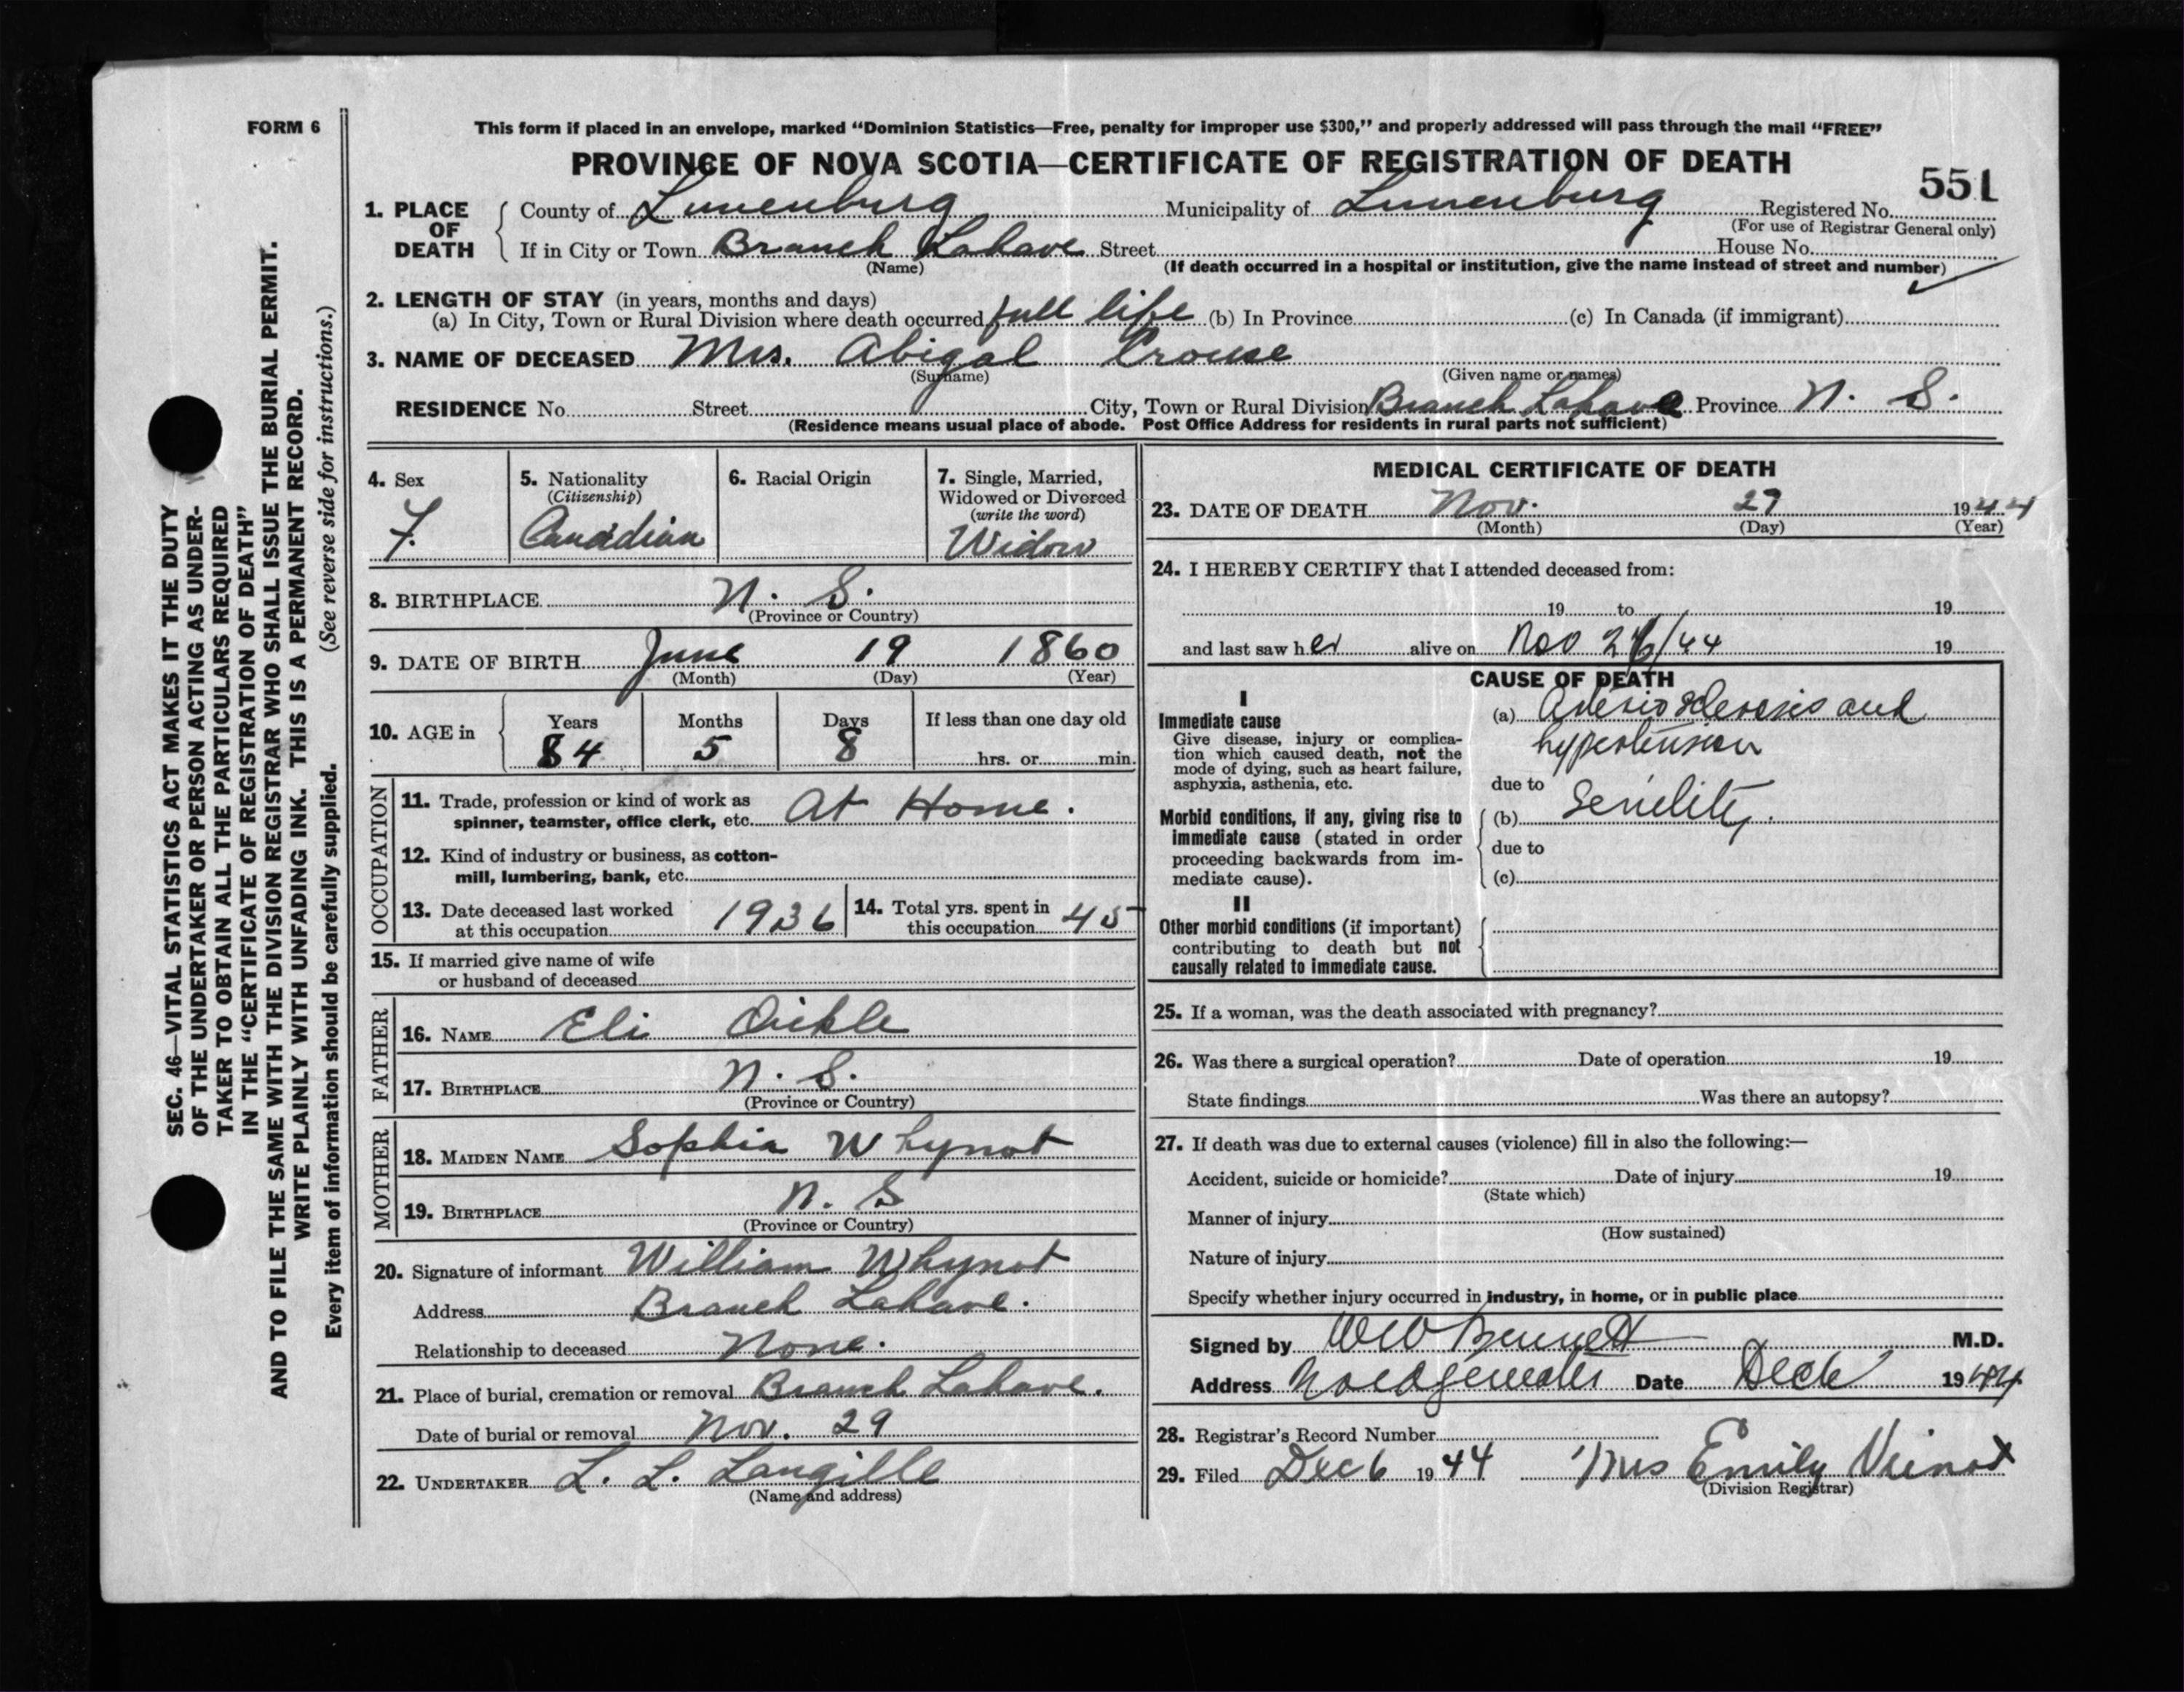 FORM 6
This form if placed in an envelope, marked “Dominion Statistics—Free, penalty for improper use $300,” and properly addressed will pass through the mail “FREE”
PROVINCE OF NOVA SCOTIA—CERTIFICATE OF REGISTRATION OF DEATH
551
1. PLACE OF DEATH
County of Lunenburg Municipality of Lunenburg Registered No.
(For use of Registrar General only)
If in City or Town Branch Lahave Street House No.
(Name) (If death occurred in a hospital or institution, give the name instead of street and number)
2. LENGTH OF STAY (in years, months and days)
(a) In City, Town or Rural Division where death occurred full life (b) In Province (c) In Canada (if immigrant)
3. NAME OF DECEASED Mrs. Abigal Crouse
(Surname) (Given name or names)
RESIDENCE No. Street City, Town or Rural Division Branch Lahave Province N. S.
(Residence means usual place of abode. Post Office Address for residents in rural parts not sufficient)
4. Sex 5. Nationality 6. Racial Origin 7. Single, Married,
(Citizenship) Widowed or Divorced
(write the word)
F. Canadian Widow
8. BIRTHPLACE N. S.
(Province or Country)
9. DATE OF BIRTH June 19 1860
(Month) (Day) (Year)
10. AGE in Years Months Days If less than one day old
84 5 8 hrs. or min.
OCCUPATION
11. Trade, profession or kind of work as
spinner, teamster, office clerk, etc. At Home.
12. Kind of industry or business, as cotton-
mill, lumbering, bank, etc.
13. Date deceased last worked
at this occupation 1936
14. Total yrs. spent in
this occupation 45
15. If married give name of wife
or husband of deceased
FATHER
16. NAME Eli Oickle
17. BIRTHPLACE N. S.
(Province or Country)
MOTHER
18. MAIDEN NAME Sophia Whynot
19. BIRTHPLACE N. S
(Province or Country)
20. Signature of informant William Whynot
Address Branch Lahave.
Relationship to deceased None.
21. Place of burial, cremation or removal Branch Lahave.
Date of burial or removal Nov. 29
22. UNDERTAKER L. L. Langille
(Name and address)
MEDICAL CERTIFICATE OF DEATH
23. DATE OF DEATH Nov. 27 1944
(Month) (Day) (Year)
24. I HEREBY CERTIFY that I attended deceased from:
19 to 19
and last saw her alive on Nov 26/44 19
CAUSE OF DEATH
I
Immediate cause
Give disease, injury or complica-
tion which caused death, not the
mode of dying, such as heart failure,
asphyxia, asthenia, etc.
(a) Arteriosclerosis and
hypertension
due to
Morbid conditions, if any, giving rise to
immediate cause (stated in order
proceeding backwards from im-
mediate cause).
(b) Senility.
due to
(c)
II
Other morbid conditions (if important)
contributing to death but not
causally related to immediate cause.
25. If a woman, was the death associated with pregnancy?
26. Was there a surgical operation? Date of operation 19
State findings Was there an autopsy?
27. If death was due to external causes (violence) fill in also the following:—
Accident, suicide or homicide? Date of injury 19
(State which)
Manner of injury
(How sustained)
Nature of injury
Specify whether injury occurred in industry, in home, or in public place
Signed by W W Bennett M.D.
Address Date Dec 6 1944
28. Registrar's Record Number
29. Filed Dec 6 1944 Mrs Emily Veinot
(Division Registrar)
SEC. 46—VITAL STATISTICS ACT MAKES IT THE DUTY
OF THE UNDERTAKER OR PERSON ACTING AS UNDER-
TAKER TO OBTAIN ALL THE PARTICULARS REQUIRED
IN THE “CERTIFICATE OF REGISTRATION OF DEATH”
AND TO FILE THE SAME WITH THE DIVISION REGISTRAR WHO SHALL ISSUE THE BURIAL PERMIT.
WRITE PLAINLY WITH UNFADING INK. THIS IS A PERMANENT RECORD.
Every item of information should be carefully supplied. (See reverse side for instructions.)